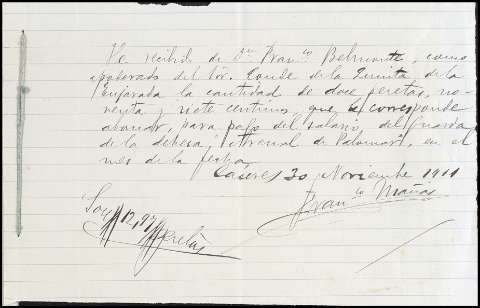 He recibido de Dn Franco Belmonte, como
apoderado del Sr. Conde de la Quinta de la
Enjarada la cantidad de doce pesetas, no-
venta y siete centimos, que le corresponde
abonar, para pago del salario, del Guarda
de la dehesa, de Palomar, en el
mes de la fecha
Caceres 30 Noviembre 1911
Son # 12,97 # Pesetas
Franco Mañas